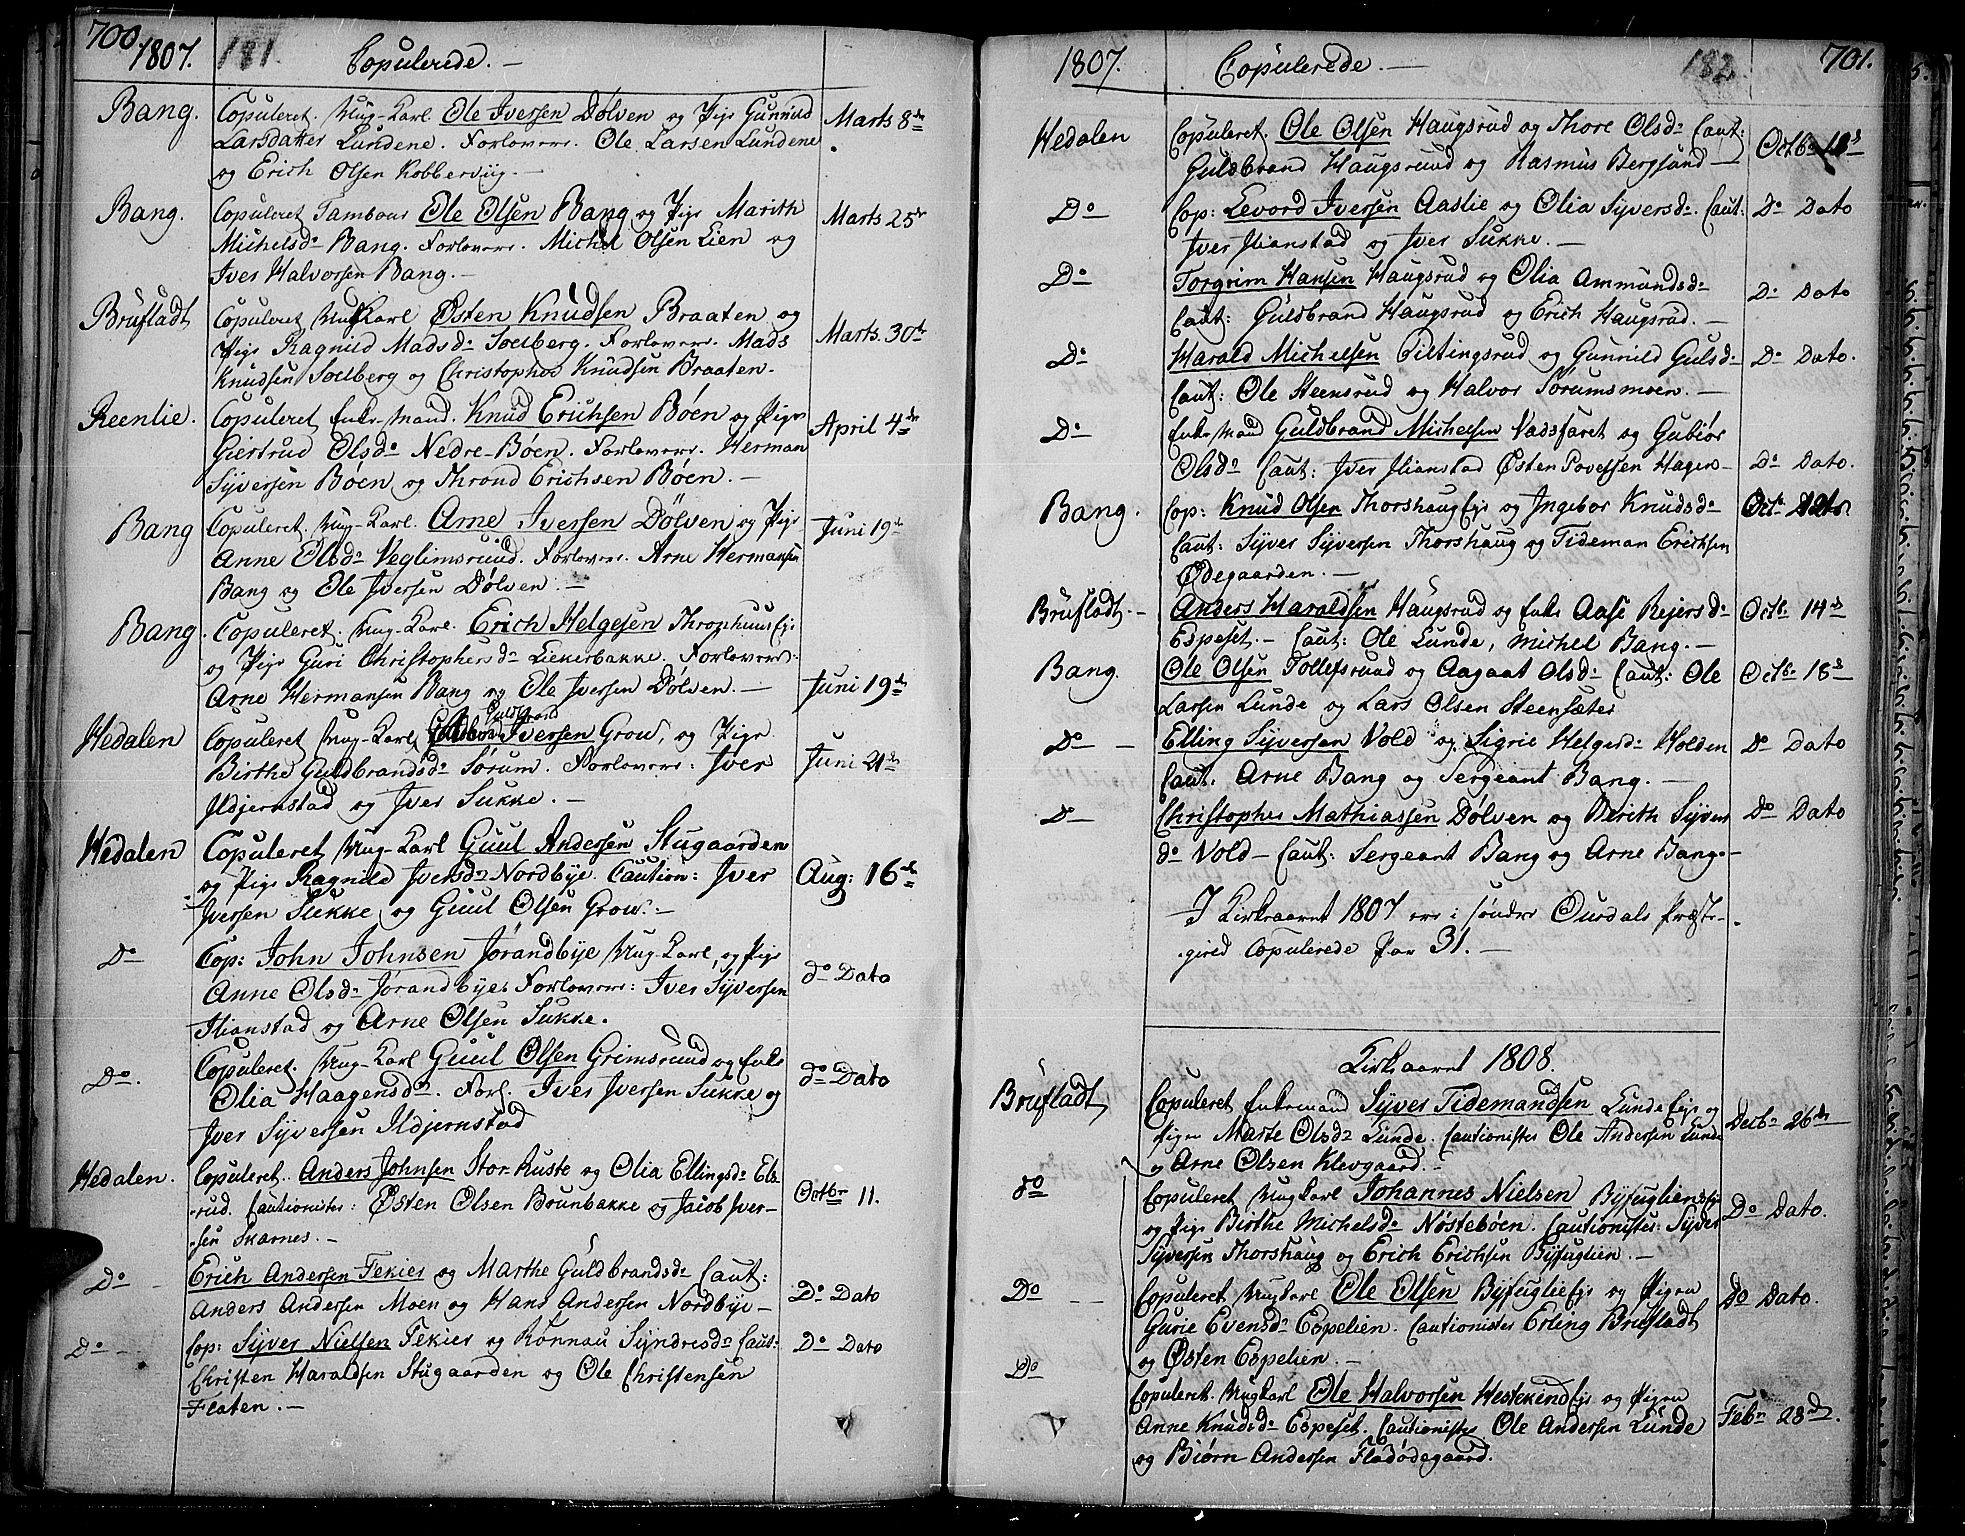 700. 1807. 181. Copulerede. —
Bang. Copuleret. Ung-Karl Ole Iversen Dølven og Pige Gunnild Marts 8de
Larsdatter Lundene. Forlovere. Ole Larsen Lundene
og Erich Olsen Robbervig. —
Bang. Copuleret Tambour Ole Olsen Bang og Pige Marith Marts 25de
Michelsdr Bang. Forlovere. Michel Olsen Lien og
Iver Halvorsen Bang. —
Brufladt Copuleret Ung Karl Østen Knudsen Braaten og Marts. 30te
Pige Ragnild Madsdr Soelberg. Forlovere. Mads
Knudsen Soelberg og Christopher Knudsen Braaten.
Reenlie. Copuleret Enke-Mand. Knud Erichsen Böen og Pige April 4de
Giertrud Olsdr Nedre-Böen. Forlovere. Herman
Syversen Böen og Thrond Erichsen Böen. —
Bang Copuleret. Ung-Karl. Arne Iversen Dölven og Pige Juni 19de
Anne Olsdr Veglimsruud. Forlovere. Arne Hermansen
Bang og Ole Iversen Dölven. —
Bang. Copuleret. Ung-Karl. Erich Helgesen Throphuus Eje
og Pige Guri Christophersdr Liekerbakke. Forlovere:
Arne Hermansen Bang og Ole Iversen Dölven. — Juni 19de
Hedalen Copuleret Ung-Karl Guldbrand Iversen Grow, og Pige
Birthe Guldbrandsdr Sørum. Forlovere: Iver Juni 21de
Ildjernstad og Iver Sukke. —
Hedalen Copuleret Ung-Karl Guul Andersen Stugaarden
og Pige Ragnild Iversdr Nordbye. Caution: Iver Aug: 16de
Iversen Sukke og Guul Olsen Grow. —
Do Cop: John Johnsen Jørandbye Ung-Karl, og Pige do Dato
Anne Olsdr Jørandbye. Forlovere: Iver Syversen
Ilianstad og Arne Olsen Sukke.
Do. Copuleret. Ung-Karl Guul Olsen Grimsruud og Enke do Dato
Olia Haagensdr. Forl. Iver Iversen Sukke og
Iver Syversen Ildjernstad
Hedalen. Copuleret. Anders Johnsen Stor-Ruste og Olia Ellingsdr Els-
rud. Cautionister: Østen Olsen Brunbakke og Jacob Iver- Octbr 11.
sen Skarnes. —
Do Erich Andersen Fekier og Marthe Guldbrandsdr Caut:
Anders Andersen Moen og Hans Andersen Nordbye — Do Dato
Do Cop: Syver Nielsen Fekier og Rönnau Syndresdr Caut: Do Dato
Christen Haraldsen Stugaarden og Ole Christensen
Flaten. —
1807. Copulerede. — 182 701.
Hedalen Copuleret. Ole Olsen Haugsrud og Thore Olsdr Caut:
Guldbrand Haugsruud og Rasmus Bergsund —
Do Cop: Levord Iversen Aaslie og Olia Syversdr. Caut: Do Dato
Iver Ilianstad og Iver Sukke. —
Do Torgrim Hansen Haugsrud og Olia Ammundsdr Do Dato
Caut: Guldbrand Haugsrud og Erich Haugsrud. —
Do Harald Michelsen Piltingsrud og Gunnild Gulsdr Do Dato.
Caut: Ole Steensrud og Halvor Sørumsmoen. —
Do Enke Mand Guldbrand Michelsen Vadsfaret og Gubiør
Olsdr Caut: Iver Ilianstad Østen Povelsen Hagen — Do Dato.
Bang. Cop: Knud Olsen Thorshaug Eje og Ingebor Knudsdr
Caut: Syver Syversen Thorshaug og Tideman Erichsen
Ødegaarden. —
Brufladt. — Anders Haraldsen Haugsrud og Enke Aase Rejersdr Octbr 14de
Espeset. — Caut: Ole Lunde, Michel Bang. —
Bang. Ole Olsen Tollefsruud og Aagaat Olsdr Caut: Ole Octbr 18de
Larsen Lunde og Lars Olsen Steensæter
Do — Elling Syversen Vold og Sigrie Helgesdr Holden Do Dato
Caut: Arne Bang og Sergeant Bang. —
Do Christopher Mathiassen Dölven og Berith Syvers Do Dato
dr Vold — Caut: Sergeant Bang og Arne Bang. —
I Kirkeaaret 1807 ere i søndre Ourdals Præste-
gield Copulerede Par 31. —
Kirkeaaret 1808.
Brufladt Copuleret Enkemand Syver Tidemandsen Lunde Eje og
Pigen Marte Olsdr Lunde. Cautionister Ole Andersen Lunde Decbr 26de
og Arne Olsen Klevgaard. —
do Copuleret Ung Karl Johannes Nielsen Byfuglien Eje
og Pige Birthe Michelsdr Nöstebøen. Cautionister: Syver Do Dato.
Syversen Thorshaug og Erich Erichsen Byfuglien. —
Do — Copuleret Ung Karl Ole Olsen Byfuglie Eje og Pigen Do Dato.
Gurie Evensdr Espelien. Cautionister Erling Brufladt
og Østen Espelien. —
Do Copuleret. Ung Karl Ole Halvorsen Hestekind Eje og Pigen
Anne Knudsdr Espeset. Cautionister Ole Andersen Lunde Febr 28de.
og Biørn Andersen Fladødegaard.